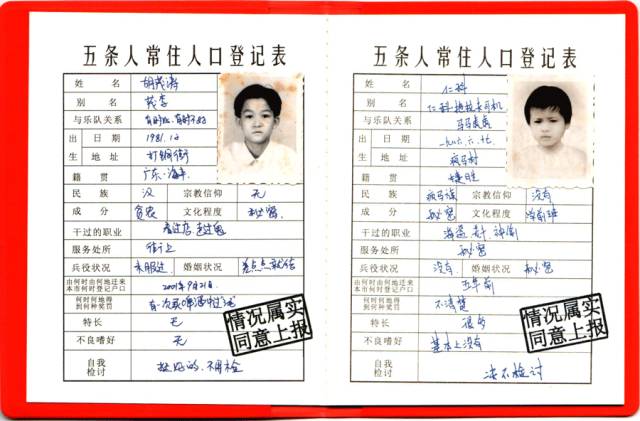 五条人常住人口登记表
姓名 胡茂涛
别名 茂涛
与乐队关系 有时好,有时不好
出生日期 1981.12
地址 打铜街
籍贯 广东·海丰
民族 汉 宗教信仰 无
成分 贫农 文化程度 秘密
干过的职业
服务处所 街上
兵役状况 未服过 婚姻状况 差点点就结
由何时由何地迁来本市何时登记户口 2001年9月21日
何时何地得到何种奖罚
特长 无
不良嗜好 无
自我检讨 挺好的,不用检
情况属实
同意上报
五条人常住人口登记表
姓名 仁科
别名
与乐队关系 马马虎虎
出生日期 一九八六.六.廿
地址 疯马村
籍贯 捷胜
民族 疯马族 宗教信仰 没有
成分 秘密 文化程度
干过的职业
服务处所 秘密
兵役状况 没有 婚姻状况 秘密
由何时由何地迁来本市何时登记户口 五年前
何时何地得到何种奖罚 不清楚
特长 很多
不良嗜好 基本上没有
自我检讨 决不检讨
情况属实
同意上报